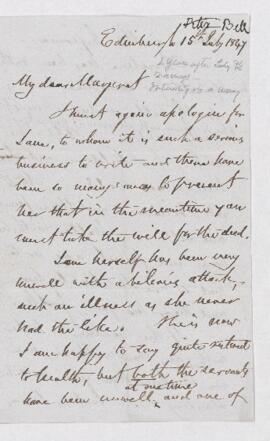 Peter Bell
Edinburgh 15th July 1847
2 years after Lady
My dear Margaret
I must again apologise for
Jane, to whom it is such a serious
business to write and there have
been so many causes to prevent
her that in the meantime you
must take the will for the deed.
Jane herself has been very
unwell with a bilious attack,
such an illness as she never
had the like. She is now
I am happy to say quite restored
to health, but both the servants
at one time
have been unwell, and one of